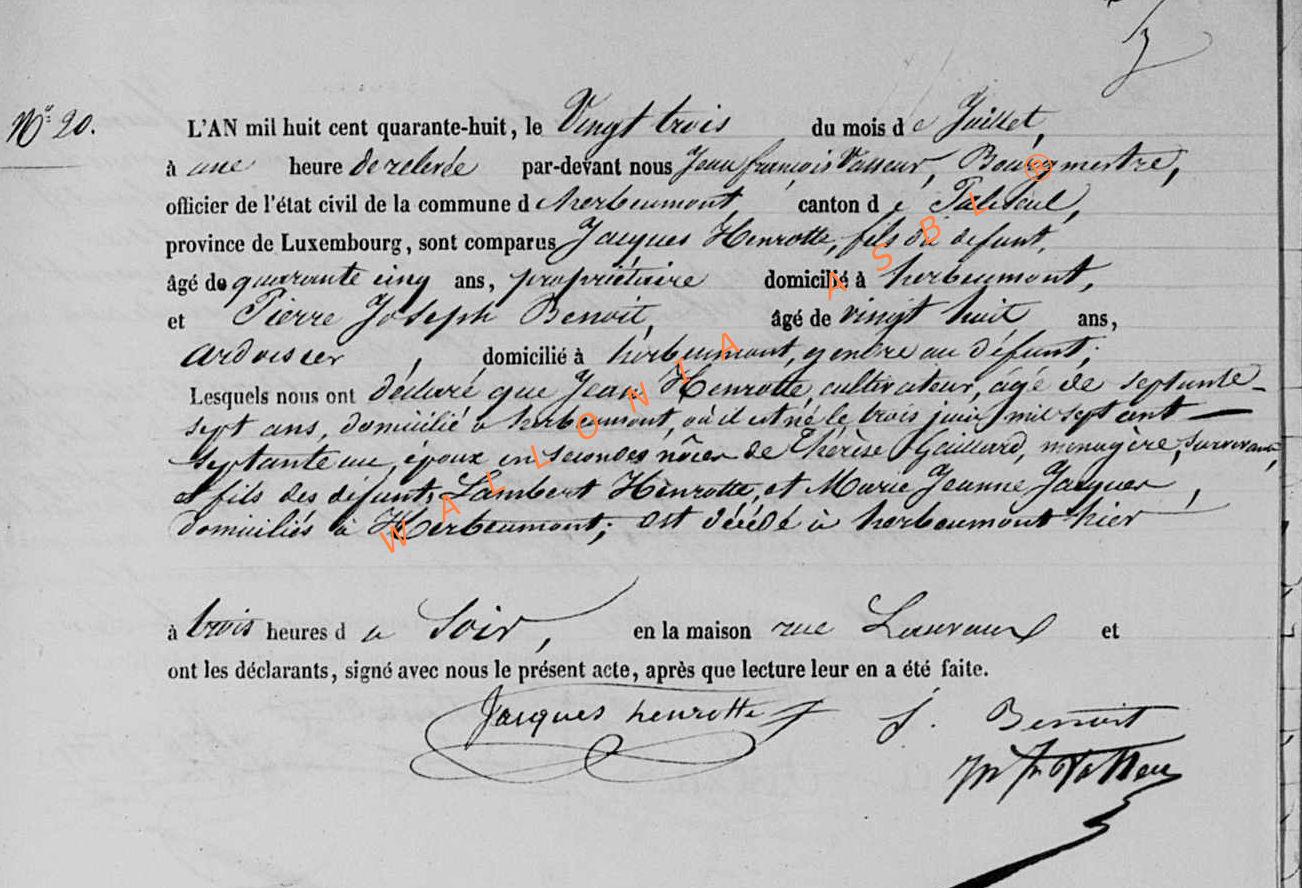 3
Nº 20.
L'AN mil huit cent quarante-huit, le Vingt trois du mois de Juillet,
à une heure de relevée par-devant nous Jean françois Vasseur, Bourgmestre,
officier de l'état civil de la commune d herbeumont, canton de Paliseul,
province de Luxembourg, sont comparus Jacques Henrotte, fils du défunt,
âgé de quarante cinq ans, propriétaire domicilié à herbeumont,
et Pierre Joseph Benoit, âgé de vingt huit ans,
ardoisier, domicilié à herbeumont, gendre au défunt;
Lesquels nous ont déclaré que Jean Henrotte, cultivateur, âgé de septante-
sept ans, domicilié à herbeumont, où il est né le trois juin mil sept cent
septante un, époux en secondes nôces de Thérèse Gaillard, menagère, survivante,
et fils des défunts Lambert Henrotte, et Marie Jeanne Jacques,
domiciliés à Herbeumont; est décédé à herbeumont hier
à trois heures du Soir, en la maison rue et
ont les déclarants, signé avec nous le présent acte, après que lecture leur en a été faite.
Jacques henrotte J. Benoit
WALLONIA ASBL ®